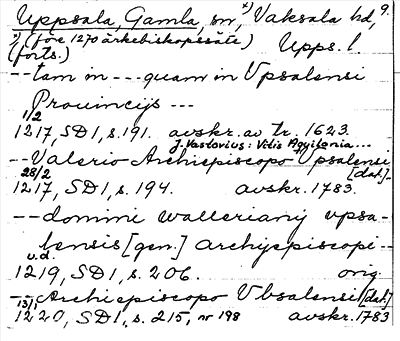 Uppsala, Gamla, sn, x) Vaksala hd, 9.
x) (före 1270 ärkebiskopssäte) Upps. l.
(forts.)
-- tam in --- quam in Vpsalensi
Prouincijs ---
1/2
1217, SD1, s. 191. avskr. av tr. 1623.
J. Vastovius: Vitis Aqvilonia...
-- Valerio Archiepiscopo Vpsalensi
28/2 [dat.]--
1217, SD1, s. 194. avskr. 1783.
-- domini wallerianj vpsa-
lensis [gen.] archyepiscopi --
u.d.
1219, SD1, s. 206. orig.
-- Archiepiscopo Vbsalensi [dat.]
13/1
1220, SD1, s. 215, nr 198 avskr. 1783